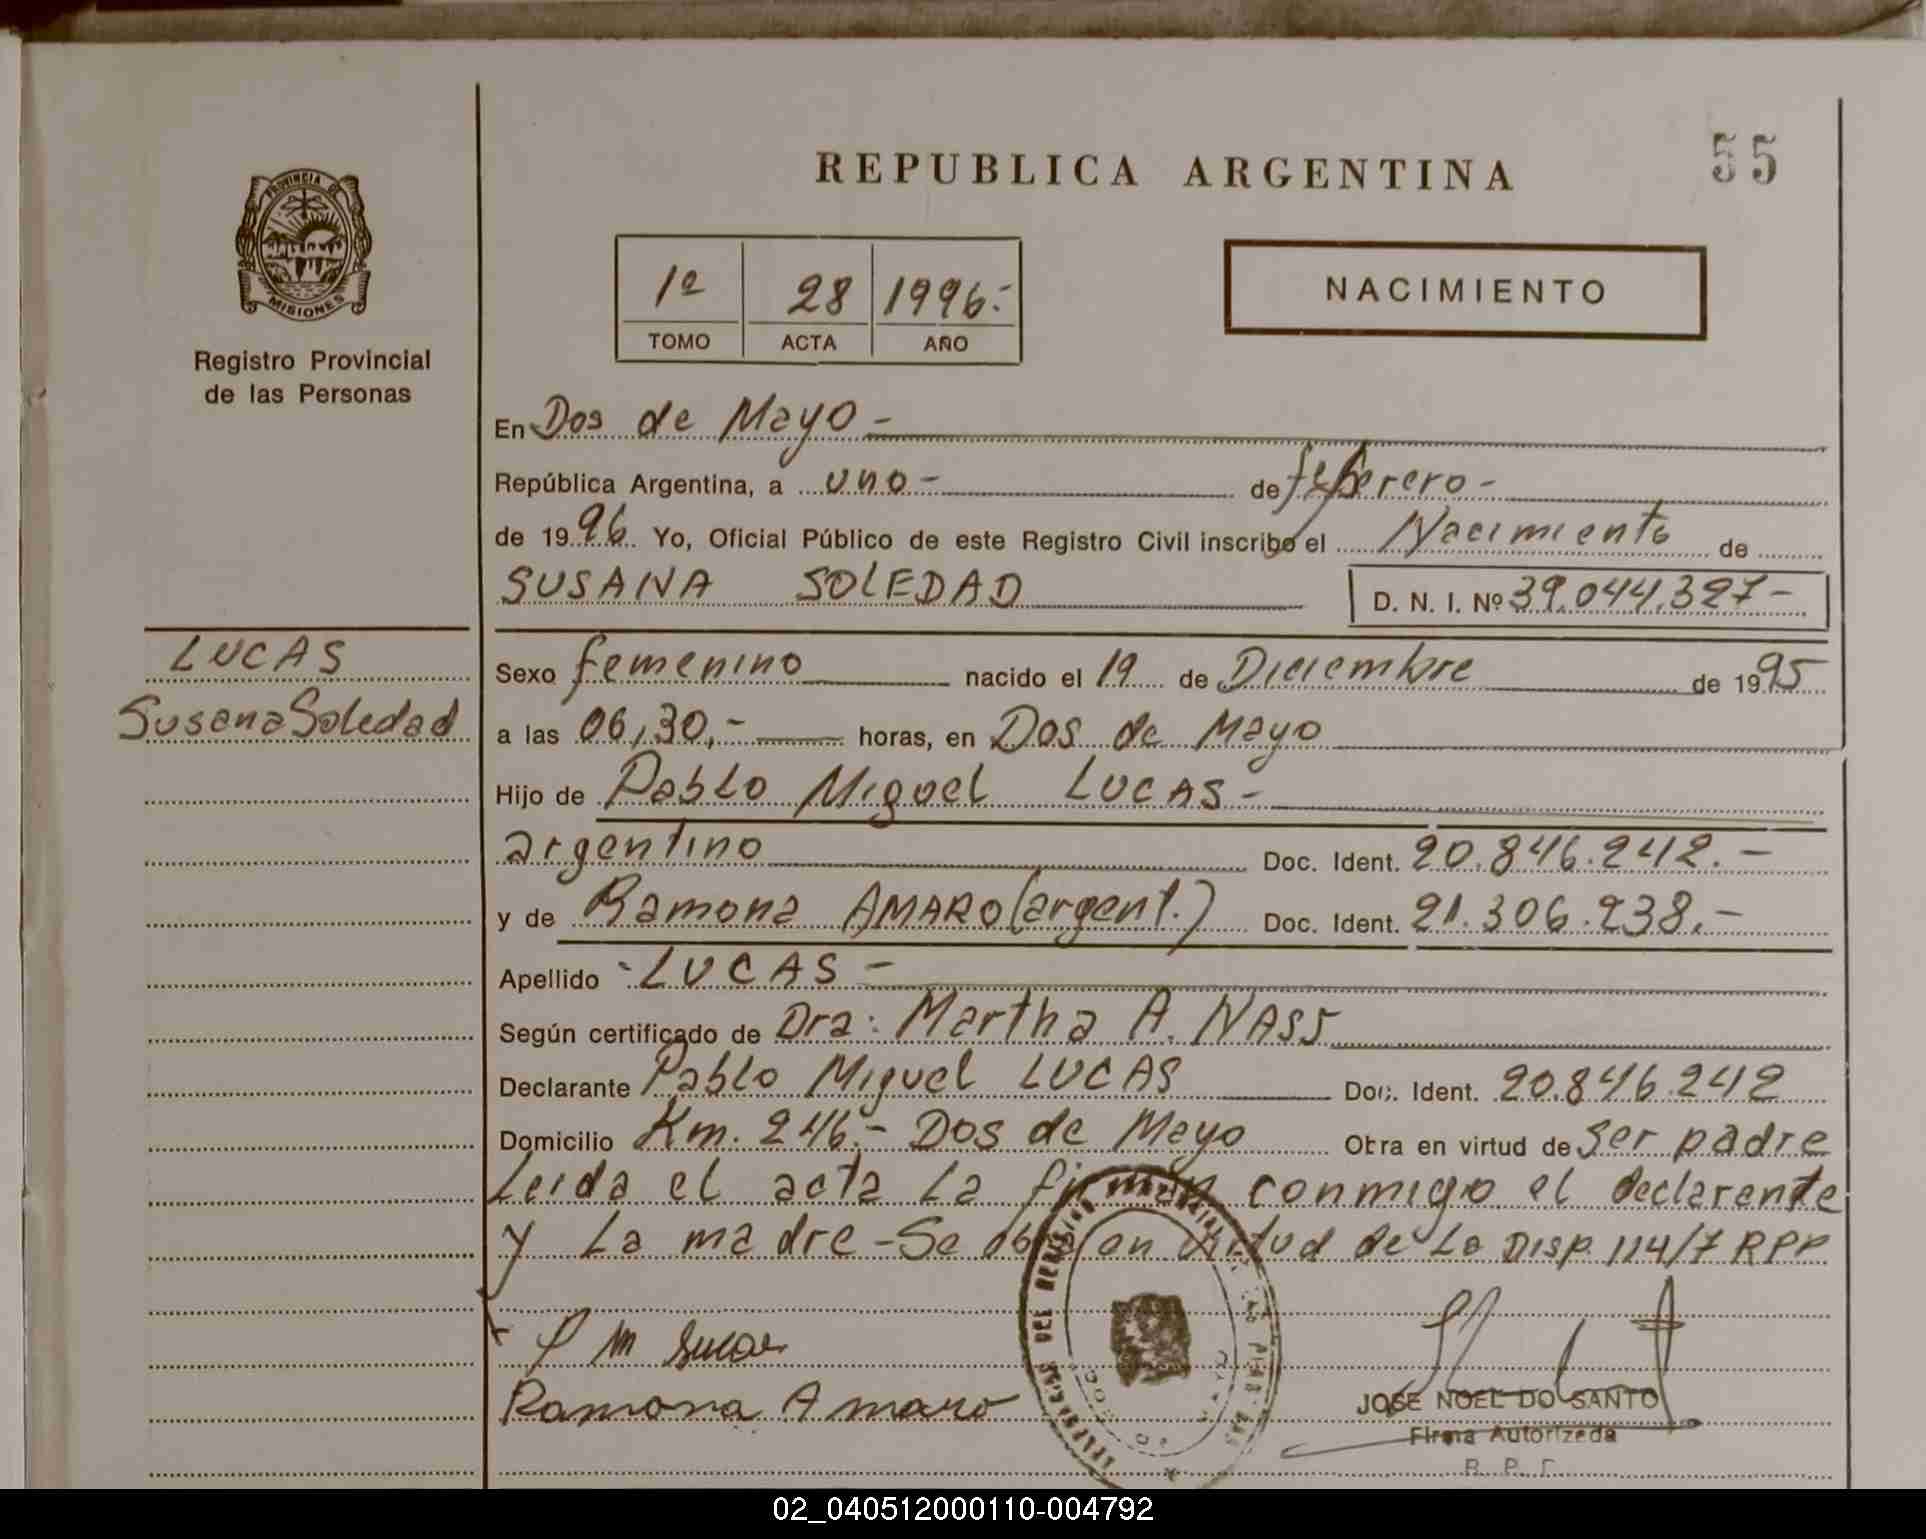 REPUBLICA ARGENTINA
55
PROVINCIA DE
MISIONES
Registro Provincial
de las Personas
1º 28 1996.-
TOMO ACTA AÑO
NACIMIENTO
En Dos de Mayo -
República Argentina, a uno - de febrero -
de 1996. Yo, Oficial Público de este Registro Civil inscribo el Nacimiento de
SUSANA SOLEDAD D. N. I. Nº 39.044.327-
LUCAS
Susana Soledad
Sexo femenino nacido el 19 de Diciembre de 1995
a las 06,30,- horas, en Dos de Mayo
Hijo de Pablo Miguel LUCAS -
argentino Doc. Ident. 20.846.242.-
y de Ramona AMARO (argent.) Doc. Ident. 21.306.238.-
Apellido LUCAS -
Según certificado de Dra: Martha A. NASS
Declarante Pablo Miguel LUCAS Doc. Ident. 20.846.242
Domicilio Km. 246.- Dos de Mayo Obra en virtud de Ser padre
Leida el acta la firman conmigo el declarante
y La madre - Se obra en virtud de La DISP. 114/7 RPP
P M Lucas
Ramona Amaro
JOSE NOEL DO SANTO
Firma Autorizada
R. P.
02_040512000110-004792